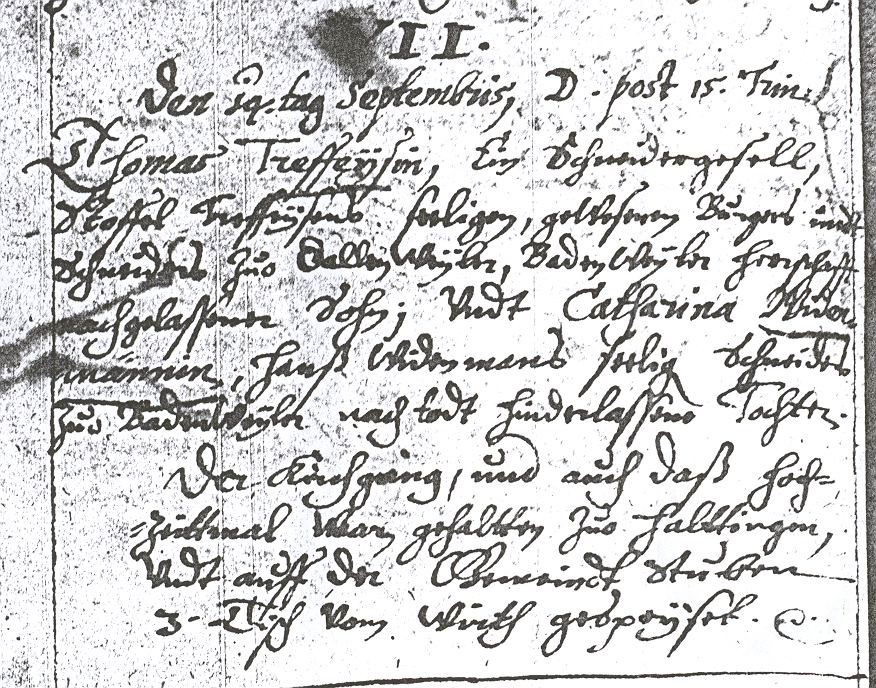 VII.
Den 14. tag Septembris, D. post 15. Trin:
Thomas Treffeysin, Ein Schneidergesell,
Stoffel Treffeysens seeligen, geweßenen Burgers undt
Schneiders zuo Badenweyler herrschafft
nachgelassener Sohn; Undt Catharina Widen-
männin, Hanß Widenmans seelig Schneiders
zuo Badenweyler nach todt hinderlassene Tochter.
Der Kirchgang, und auch daß hoch-
zeittmal war gehaltten zuo Halttingen,
Undt auff der Gemeindt Stuben
3. Tisch vom Wirth gespeyset.